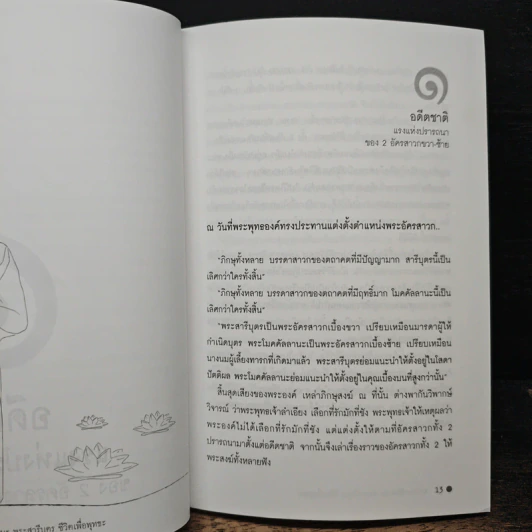 ๑
อดีตชาติ
แรงแห่งปรารถนา
ของ 2 อัครสาวกขวา-ซ้าย
ณ วันที่พระพุทธองค์ทรงประทานแต่งตั้งตำแหน่งพระอัครสาวก..
"ภิกษุทั้งหลาย บรรดาสาวกของตถาคตที่มีปัญญามาก สารีบุตรนี้เป็น
เลิศกว่าใครทั้งสิ้น"
"ภิกษุทั้งหลาย บรรดาสาวกของตถาคตที่มีฤทธิ์มาก โมคคัลลานะนี้เป็น
เลิศกว่าใครทั้งสิ้น"
"พระสารีบุตรเป็นพระอัครสาวกเบื้องขวา เปรียบเหมือนมารดาผู้ให้
กำเนิดบุตร พระโมคคัลลานะเป็นพระอัครสาวกเบื้องซ้าย เปรียบเหมือน
นางนมผู้เลี้ยงทารกที่เกิดมาแล้ว พระสารีบุตรย่อมแนะนำให้ตั้งอยู่ในโสดา
ปัตติผล พระโมคคัลลานะย่อมแนะนำให้ตั้งอยู่ในคุณเบื้องบนที่สูงกว่านั้น"
สิ้นสุดเสียงของพระองค์ เหล่าภิกษุสงฆ์ ณ ที่นั้น ต่างพากันวิพากษ์
วิจารณ์ ว่าพระพุทธเจ้าลำเอียง เลือกที่รักมักที่ชัง พระพุทธเจ้าให้เหตุผลว่า
พระองค์ไม่ได้เลือกที่รักมักที่ชัง แต่แต่งตั้งให้ตามที่อัครสาวกทั้ง 2
ปรารถนามาตั้งแต่อดีตชาติ จากนั้นจึงเล่าเรื่องราวของอัครสาวกทั้ง 2 ให้
พระสงฆ์ทั้งหลายฟัง
13
พระสารีบุตร ชีวิตเพื่อพุทธะ